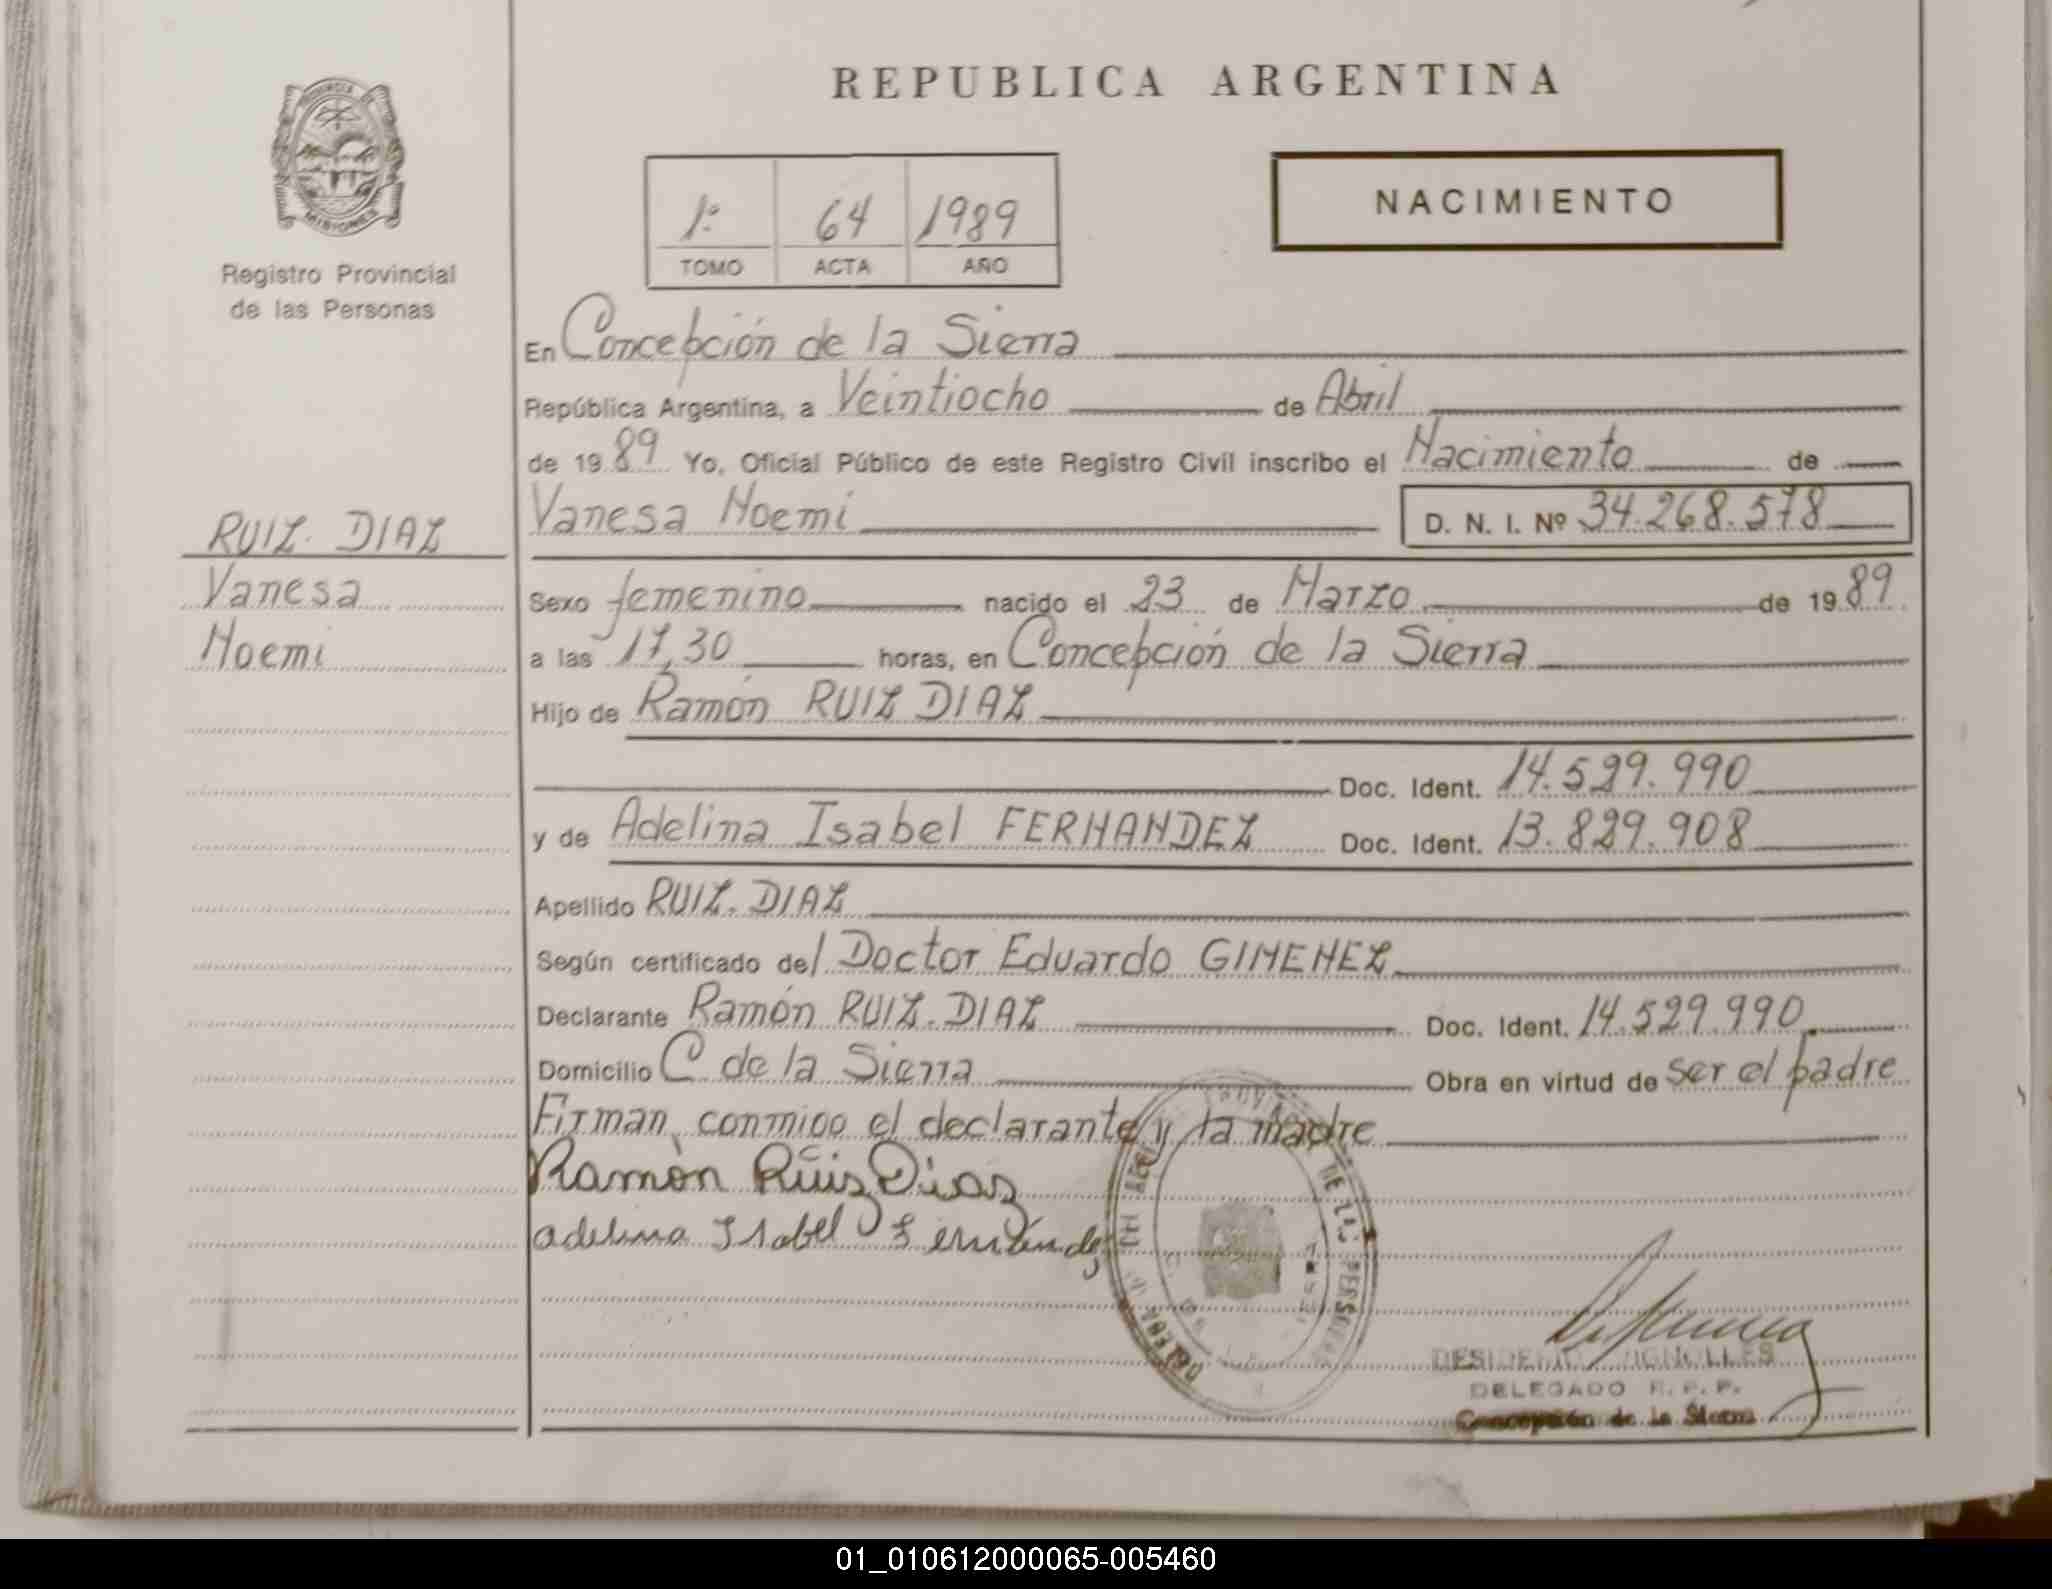 REPUBLICA ARGENTINA
PROVINCIA DE
MISIONES
Registro Provincial
de las Personas
1º 64 1989
TOMO ACTA AÑO
NACIMIENTO
En Concepción de la Sierra
República Argentina, a Veintiocho de Abril
de 1989 Yo, Oficial Público de este Registro Civil inscribo el Nacimiento de
Vanesa Noemi D. N. I. Nº 34.268.578
RUIZ. DIAZ
Vanesa
Noemi
Sexo femenino nacido el 23 de Marzo de 1989
a las 17,30 horas, en Concepción de la Sierra
Hijo de Ramón RUIZ DIAZ
Doc. Ident. 14.529.990
y de Adelina Isabel FERNANDEZ Doc. Ident. 13.829.908
Apellido RUIZ. DIAZ
Según certificado del Doctor Eduardo GIMENEZ
Declarante Ramón RUIZ. DIAZ Doc. Ident. 14.529.990
Domicilio C de la Sierra Obra en virtud de ser el padre
Firman, conmigo el declarante y la madre
Ramón Ruis Dias
adelina Isabel Fernández
DE LAS PERSONAS
DESIDERIO VIGNOLLES
DELEGADO R. P. P.
Concepción de la Sierra
01_010612000065-005460